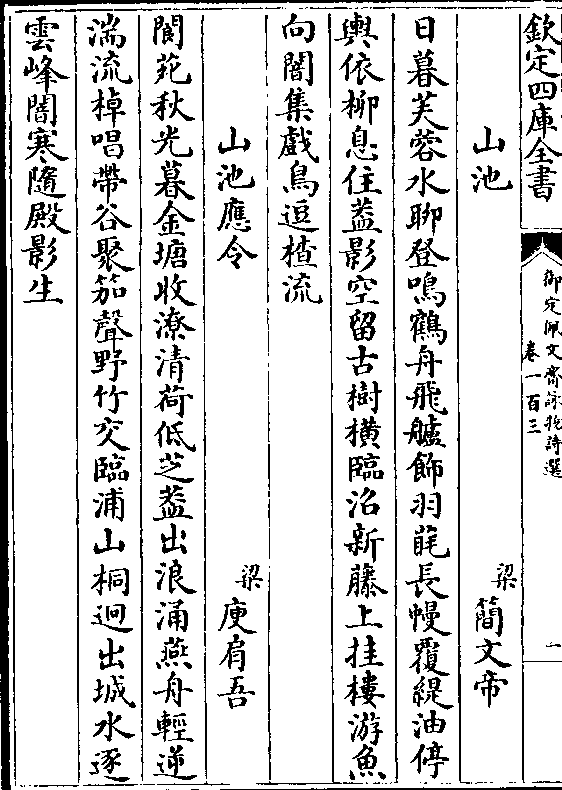 欽定四庫全書
御定佩文齋詠物詩選
卷一百三
一
山池
梁
簡文帝
日暮芙蓉水聊登鳴鶴舟飛艫飾羽毦長幔覆緹油停
輿依柳息住葢影空留古樹横臨沼新藤上挂樓游魚
向闇集戲鳥逗楂流
山池應令
梁
庾肩吾
閬苑秋光暮金塘收潦清荷低芝葢出浪涌燕舟輕逆
湍流棹唱帶谷聚笳聲野竹交臨浦山桐迥出城水逐
雲峰闇寒隨殿影生